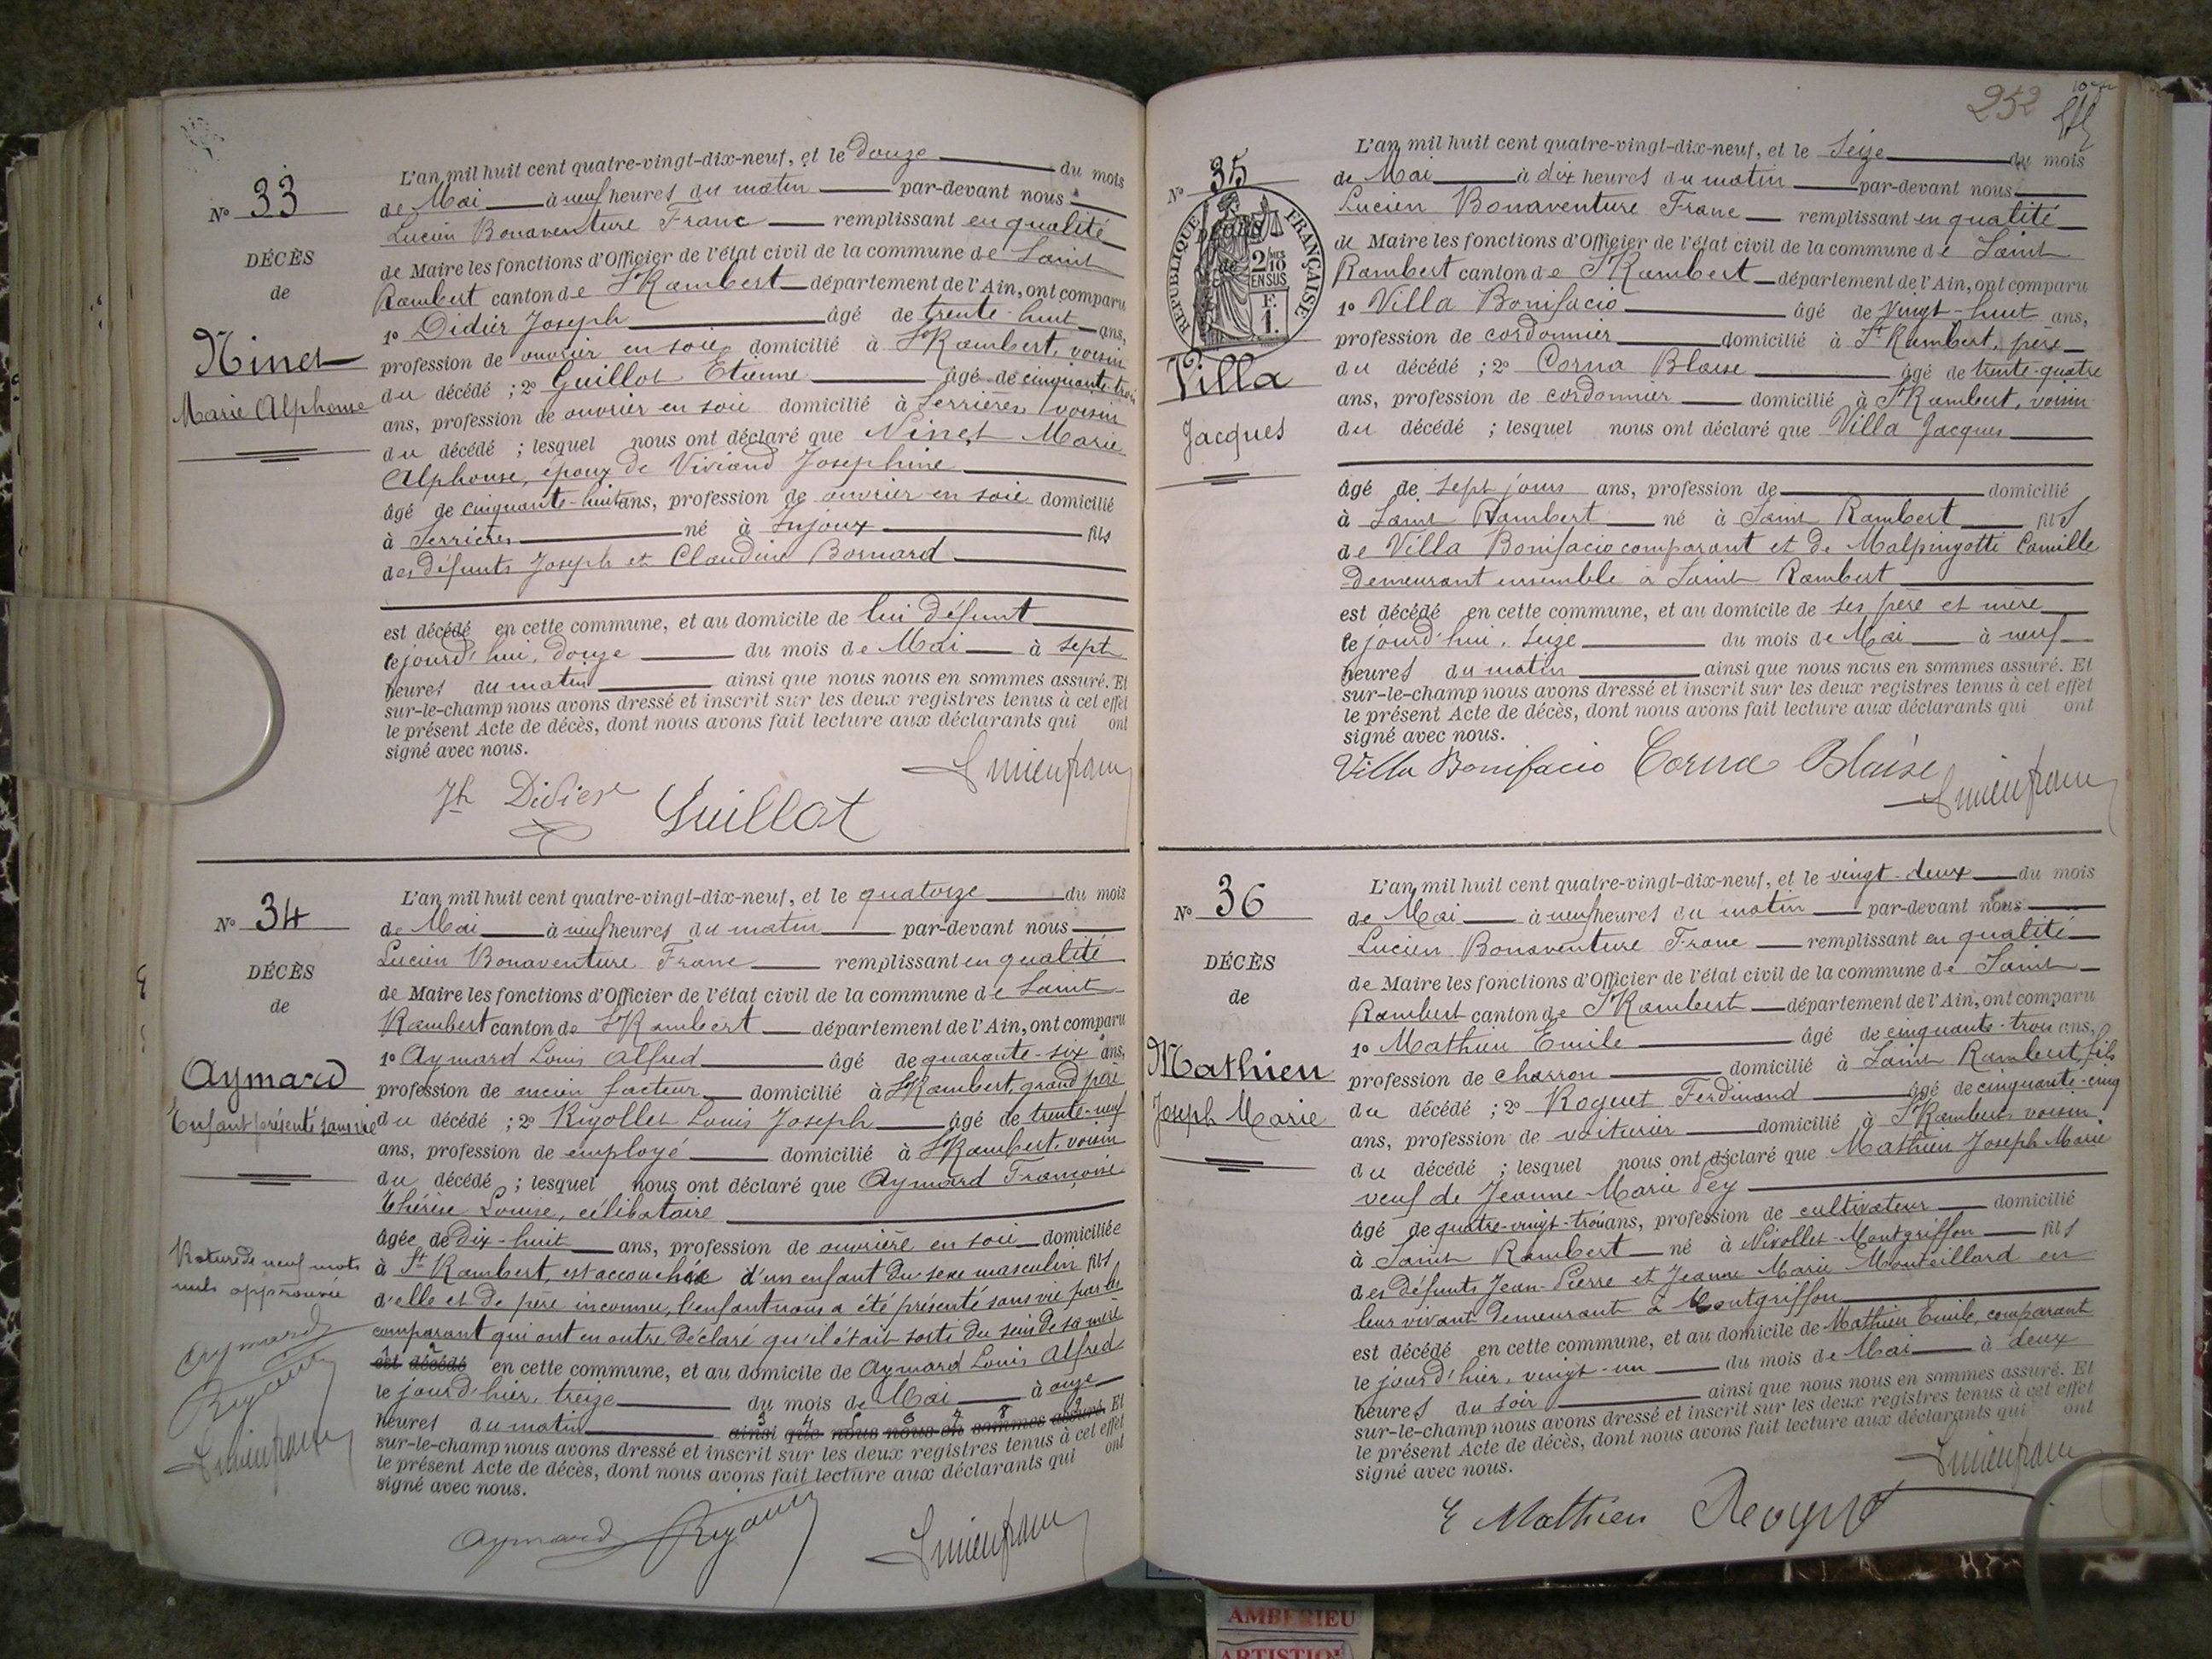 N° 33
DÉCÈS
de
Ninet
Marie Alphonse
L'an mil huit cent quatre-vingt-dix-neuf, et le douze du mois
de Mai à neuf heures du matin par-devant nous
Lucien Bonaventure Franc remplissant en qualité
de Maire les fonctions d'Officier de l'état civil de la commune de Saint
Rambert canton de St Rambert département de l'Ain, ont comparu
1° Didier Joseph âgé de trente-huit ans,
profession de ouvrier en soie domicilié à St Rambert, voisin
du décédé ; 2° Guillot Etienne âgé de cinquante-trois
ans, profession de ouvrier en soie domicilié à Serrières voisin
du décédé ; lesquel nous ont déclaré que Ninet Marie
Alphonse, époux de Viviand Josephine
âgé de cinquante-huit ans, profession de ouvrier en soie domicilié
à Serrières né à Injoux fils
des défunts Joseph et Claudine Bornard
est décédé en cette commune, et au domicile de lui défunt
le jourd'hui, douze du mois de Mai à sept
heures du matin ainsi que nous nous en sommes assuré. Et
sur-le-champ nous avons dressé et inscrit sur les deux registres tenus à cet effet
le présent Acte de décès, dont nous avons fait lecture aux déclarants qui ont
signé avec nous.
Jh Didier Guillot Lucien franc
N° 34
DÉCÈS
de
Aymard
Enfant présenté sans vie
Rature de neuf mots
nuls approuvée
Aymard
Lucien franc
L'an mil huit cent quatre-vingt-dix-neuf, et le quatorze du mois
de Mai à neuf heures du matin par-devant nous
Lucien Bonaventure Franc remplissant en qualité
de Maire les fonctions d'Officier de l'état civil de la commune de Saint
Rambert canton de St Rambert département de l'Ain, ont comparu
1° Aymard Louis Alfred âgé de quarante-six ans,
profession de ancien facteur domicilié à St Rambert, grand père
du décédé ; 2° Rigollet Louis Joseph âgé de trente-neuf
ans, profession de employé domicilié à St Rambert, voisin
du décédé ; lesquel nous ont déclaré que Aymard Françoise
Thérèse Louise, célibataire
âgée de dix-huit ans, profession de ouvrière en soie domiciliée
à St Rambert, est accouchée d'un enfant du sexe masculin fils
d'elle et de père inconnu, l'enfant nous a été présenté sans vie par les
comparant qui ont en outre déclaré qu'il était sorti du sein de sa mère
est décédé en cette commune, et au domicile de Aymard Louis Alfred
le jourd'hier, treize du mois de Mai à onze
heures du matin ainsi que nous nous en sommes assuré. Et
sur-le-champ nous avons dressé et inscrit sur les deux registres tenus à cet effet
le présent Acte de décès, dont nous avons fait lecture aux déclarants qui ont
signé avec nous.
Aymard Lucien franc
252
N° 35
RÉPUBLIQUE FRANÇAISE
2/10 EN SUS
F. 1.
Villa
Jacques
L'an mil huit cent quatre-vingt-dix-neuf, et le Seize du mois
de Mai à dix heures du matin par-devant nous
Lucien Bonaventure Franc remplissant en qualité
de Maire les fonctions d'Officier de l'état civil de la commune de Saint
Rambert canton de St Rambert département de l'Ain, ont comparu
1° Villa Bonifacio âgé de vingt-huit ans,
profession de cordonnier domicilié à St Rambert, père
du décédé ; 2° Corna Blaise âgé de trente-quatre
ans, profession de cordonnier domicilié à St Rambert, voisin
du décédé ; lesquel nous ont déclaré que Villa Jacques
âgé de sept jours ans, profession de domicilié
à Saint Rambert né à Saint Rambert fils
de Villa Bonifacio comparant et de Malpingotti Camille
demeurant ensemble à Saint Rambert
est décédé en cette commune, et au domicile de ses père et mère
le jourd'hui, seize du mois de Mai à neuf
heures du matin ainsi que nous nous en sommes assuré. Et
sur-le-champ nous avons dressé et inscrit sur les deux registres tenus à cet effet
le présent Acte de décès, dont nous avons fait lecture aux déclarants qui ont
signé avec nous.
Villa Bonifacio Corna Blaise Lucien franc
N° 36
DÉCÈS
de
Mathieu
Joseph Marie
L'an mil huit cent quatre-vingt-dix-neuf, et le vingt-deux du mois
de Mai à neuf heures du matin par-devant nous
Lucien Bonaventure Franc remplissant en qualité
de Maire les fonctions d'Officier de l'état civil de la commune de Saint
Rambert canton de St Rambert département de l'Ain, ont comparu
1° Mathieu Emile âgé de cinquante-trois ans,
profession de charron domicilié à Saint Rambert, fils
du décédé ; 2° Roguet Ferdinand âgé de cinquante-cinq
ans, profession de voiturier domicilié à St Rambert voisin
du décédé ; lesquel nous ont déclaré que Mathieu Joseph Marie
veuf de Jeanne Marie Pey
âgé de quatre-vingt-trois ans, profession de cultivateur domicilié
à Saint Rambert né à Nivollet-Montgriffon fils
des défunts Jean-Pierre et Jeanne Marie Monteillard en
leur vivant demeurant à Montgriffon
est décédé en cette commune, et au domicile de Mathieu Emile, comparant
le jourd'hier, vingt-un du mois de Mai à deux
heures du soir ainsi que nous nous en sommes assuré. Et
sur-le-champ nous avons dressé et inscrit sur les deux registres tenus à cet effet
le présent Acte de décès, dont nous avons fait lecture aux déclarants qui ont
signé avec nous.
Lucien franc
E Mathieu Roguet
AMBERIEU
ARTISTIQ